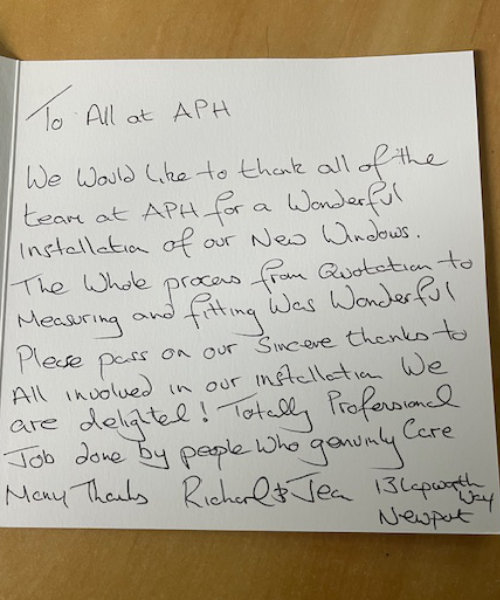 To All at APH
We Would like to thank all of the
team at APH for a Wonderful
Installation of our New Windows.
The Whole process from Quotation to
Measuring and fitting Was Wonderful
Please pass on our Sincere thanks to
All involved in our installation We
are delighted! Totally Professional
Job done by people Who genuinly Care
Many Thanks Richard & Jean 13 Lapworth
Way
Newport